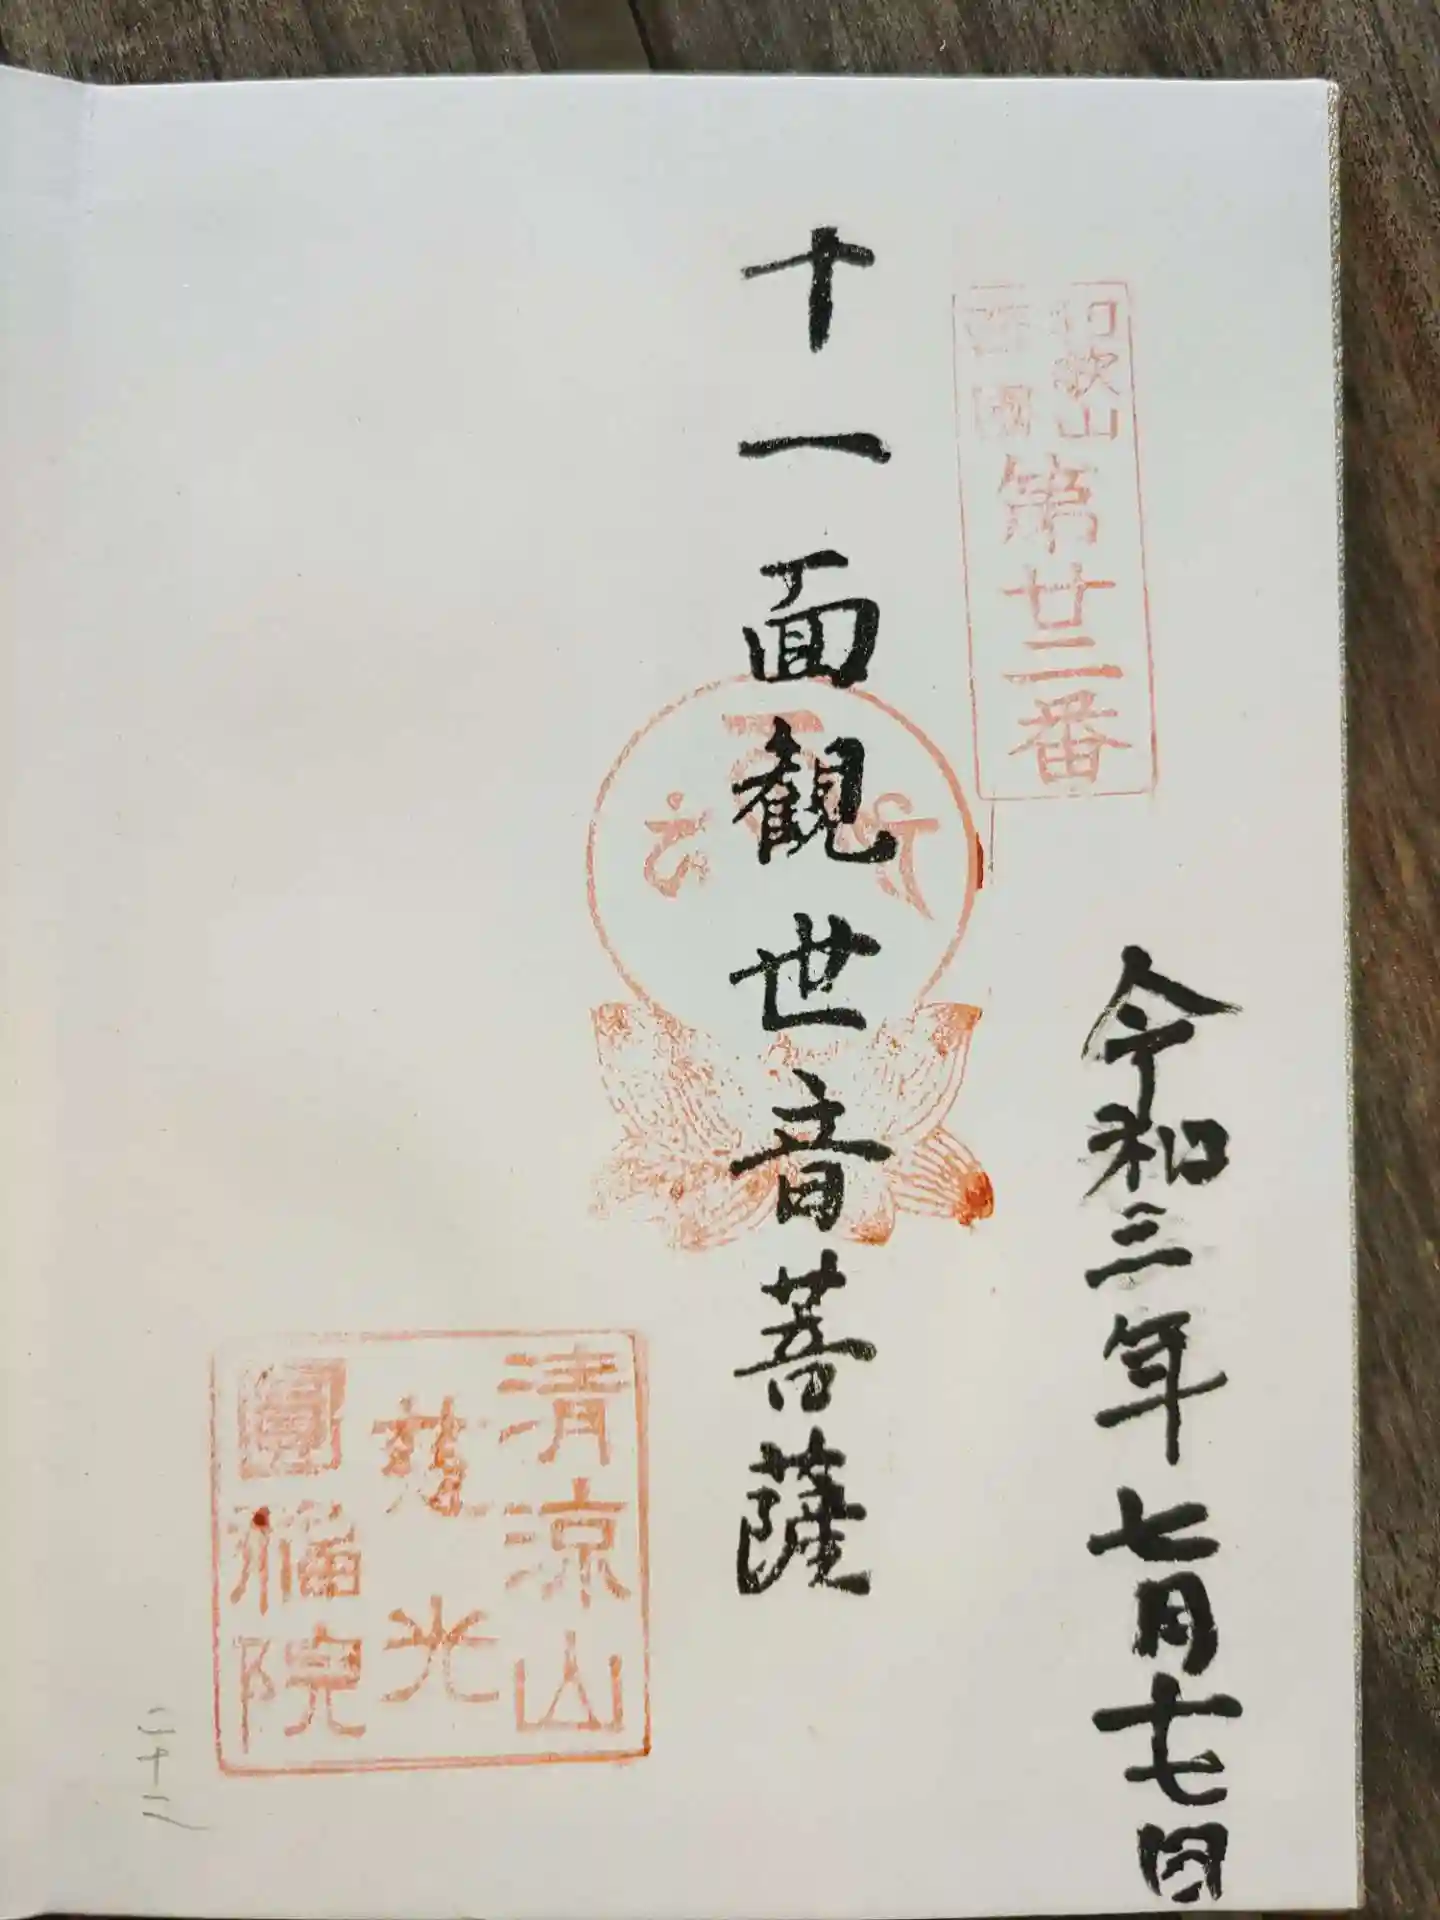 和歌山
西國
第廿二番
令和三年七月十七日
十一面観世音菩薩
清涼山
慈光
圓福院
二十二